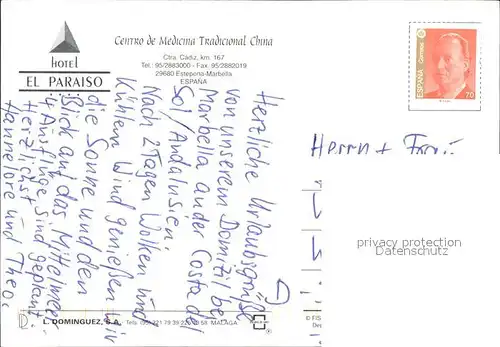 hotel
EL PARAISO
Centro de Medicina Tradicional China
Ctra. Cádiz, km. 167
Tel.: 95/2883000 - Fax: 95/2882019
29680 Estepona-Marbella
ESPAÑA
ESPAÑA
Correos
70
Herzliche Urlaubsgrüße
von unserem Domizil bei
Marbella an der Costa del
Sol/Andalusien.
Nach 2 Tagen Wolken und
kühlem Wind genießen wir
die Sonne und den
Blick auf das Mittelmeer.
4 Ausflüge sind geplant.
Herzlichst
Hannelore und Theo.
Herrn + Frau
privacy protection
Datenschutz
L. DOMINGUEZ, S.A. MALAGA
© FIS